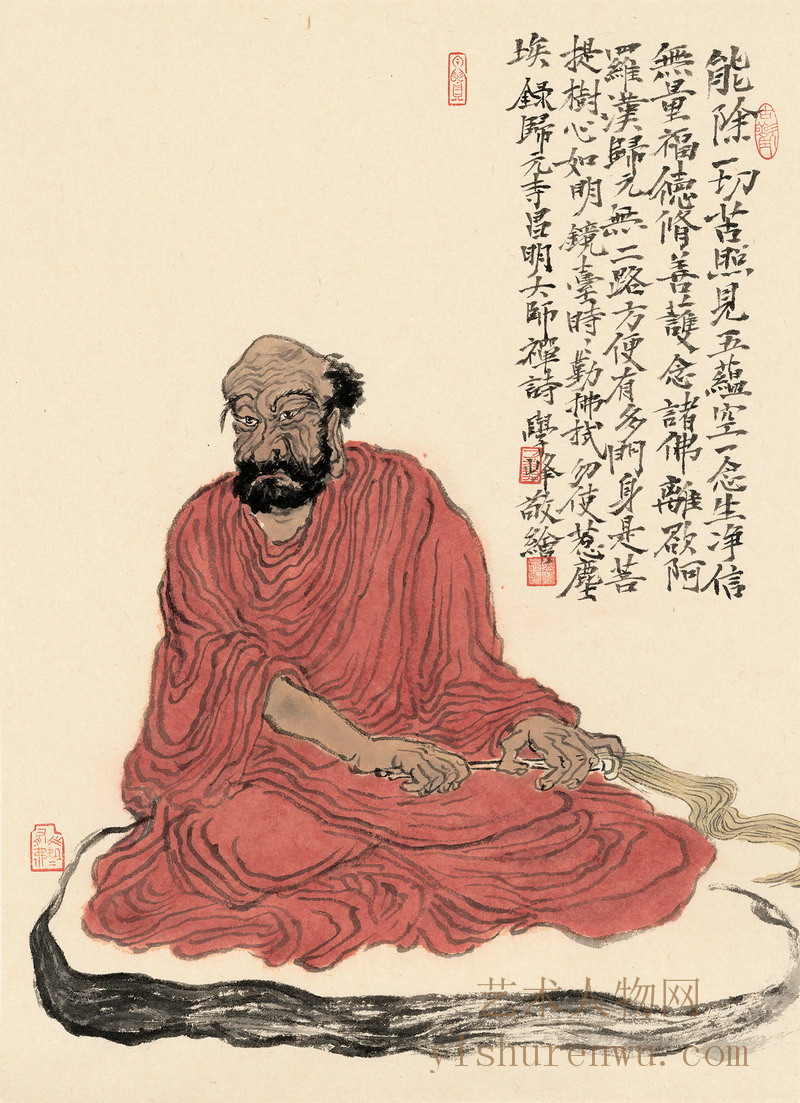 能除一切苦照見五蘊空一念生净信
無量福德脩善護念諸佛離欲阿
羅漢歸元無二路方便有多門身是菩
提樹心如明鏡臺時〻勤拂拭勿使惹塵
埃 錄歸元寺昌明大師禪詩 學峯敬繪
艺术人物网
yishurenwu.com